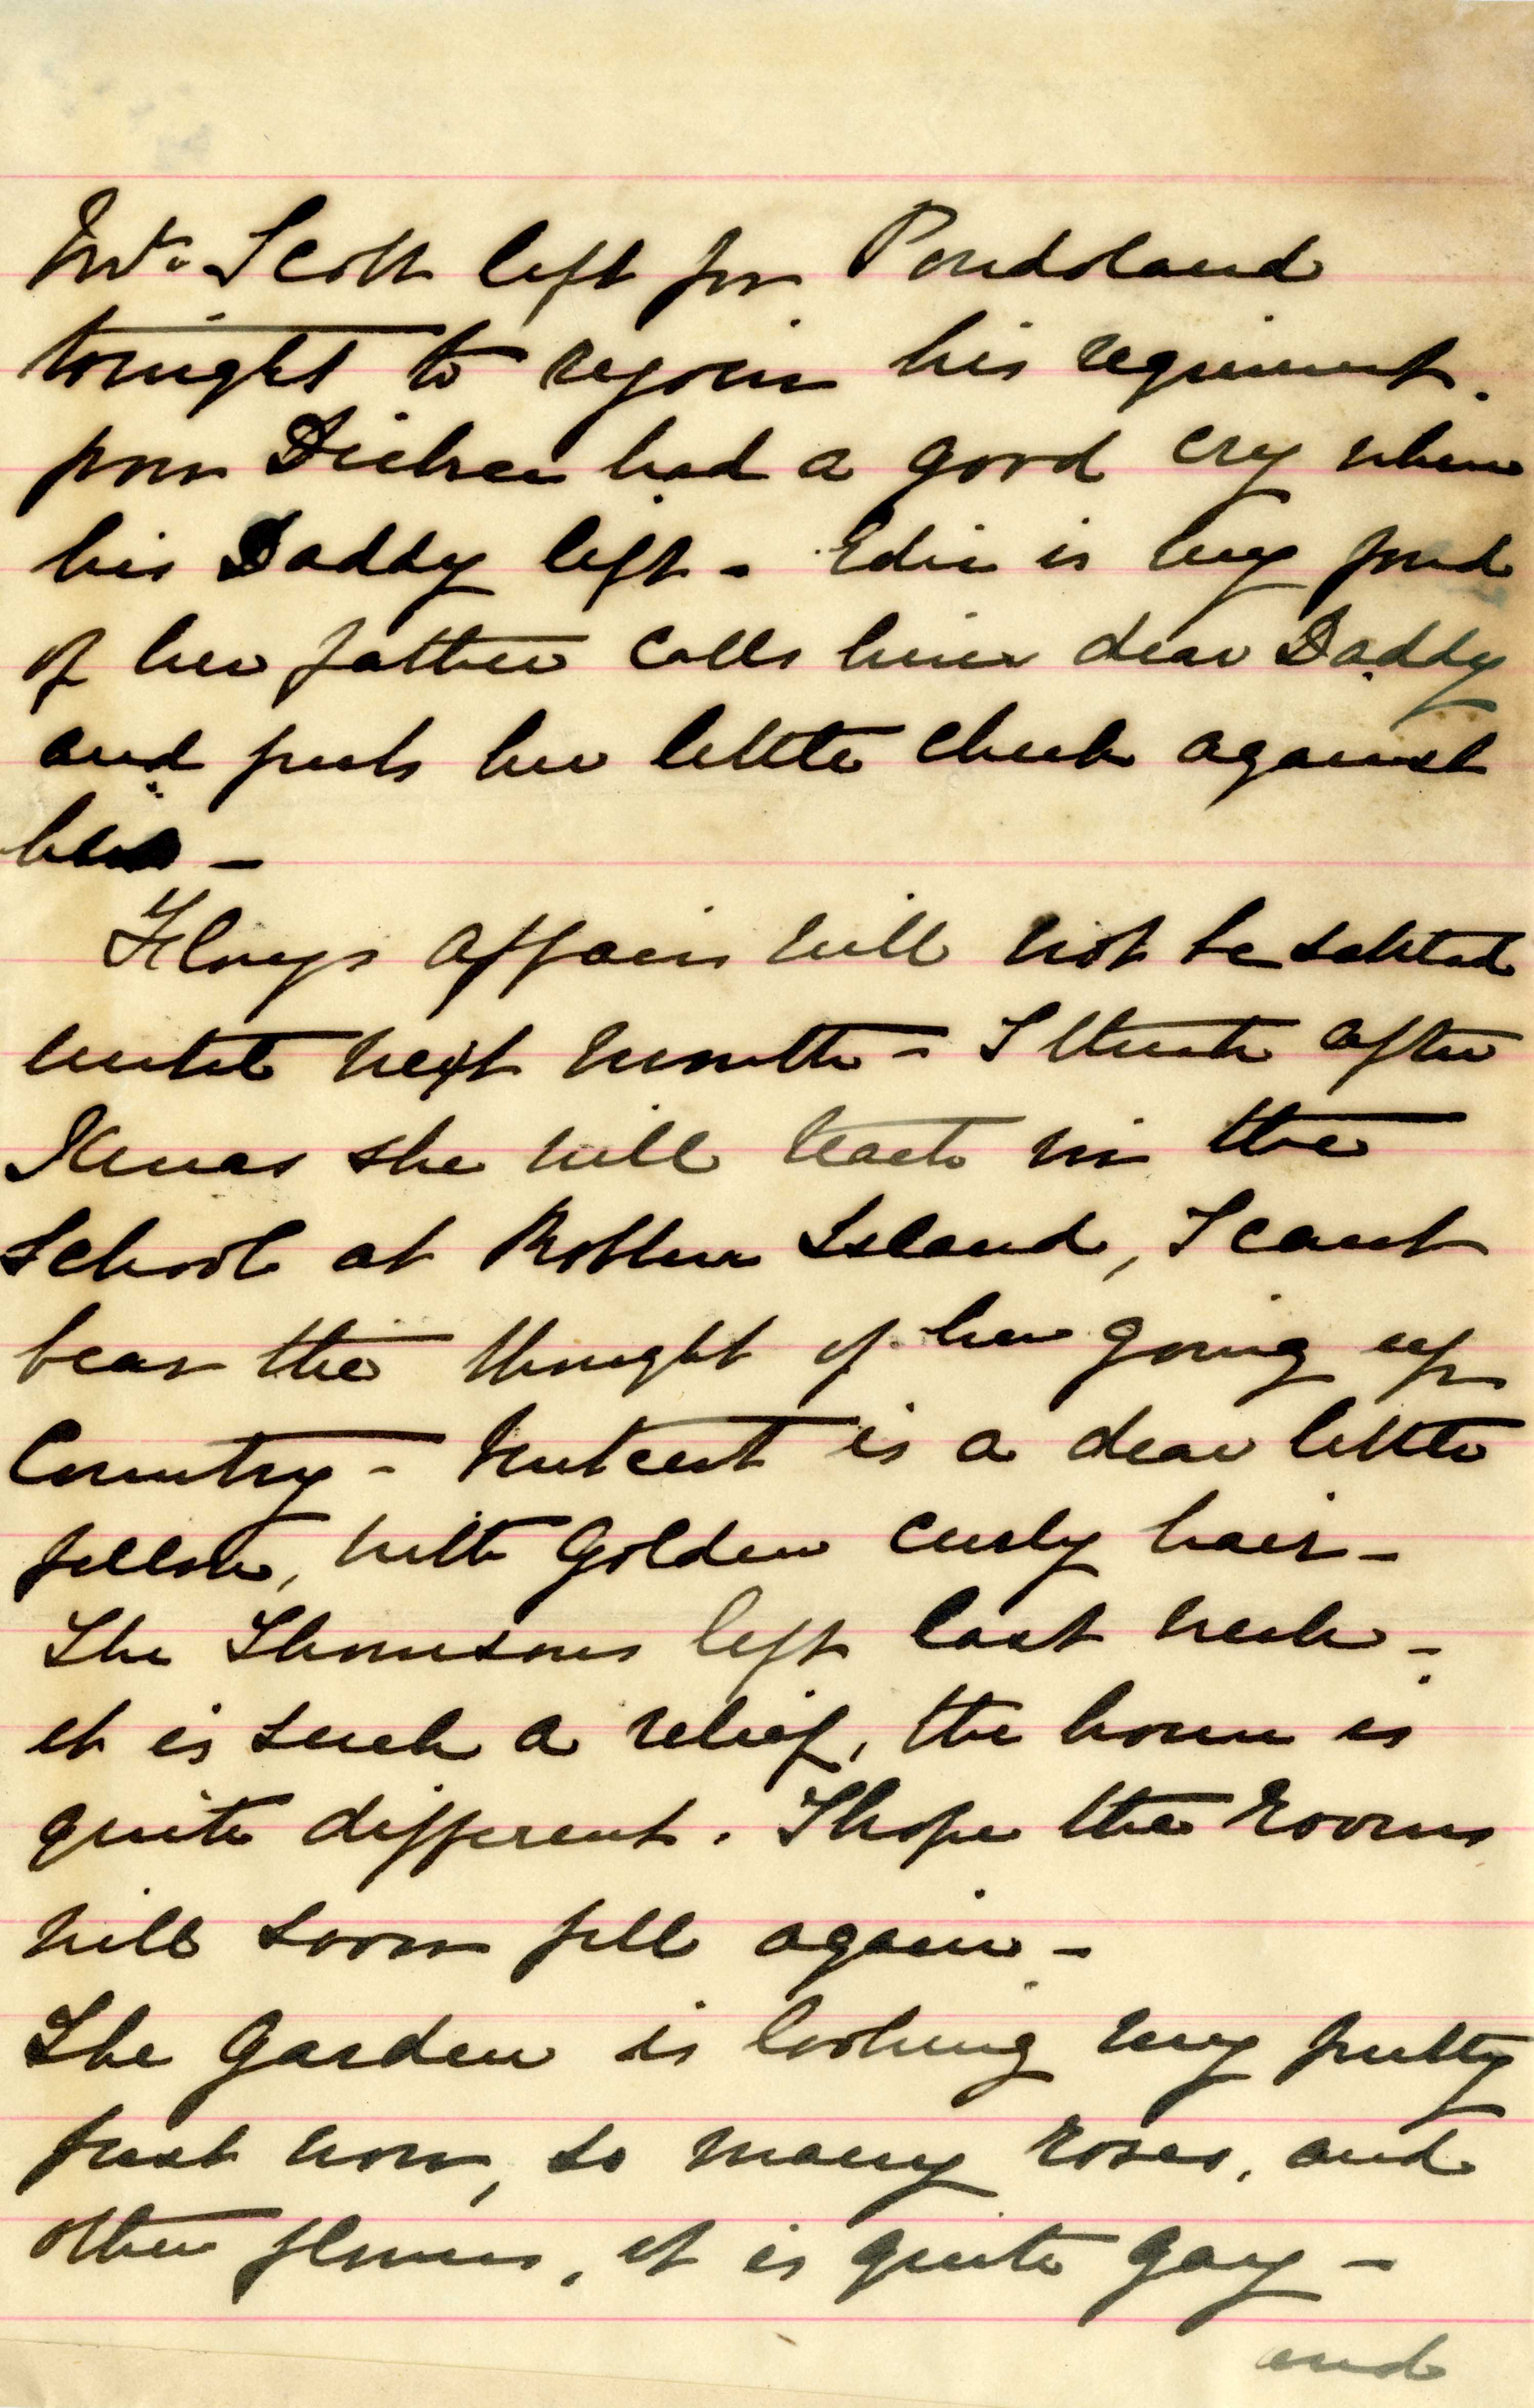 Mr. Scott left for Pondoland
tonight to rejoin his regiment.
poor had a good cry when
his Daddy left - Edie is very fond
of her father calls him dear Daddy
and puts her little cheek against
his -
affairs will not be settled
until next month - I think after
Xmas she will teach in the
School at Robben Island, I cant
bear the thought of her going up
Country - is a dear little
fellow, with Golden curly hair -
The Thomsons left last week -
it is such a relief, the house is
quite different. I hope the rooms
will soon fill again -
The Garden is looking very pretty
just now, so many roses, and
other flowers, it is quite gay -
and